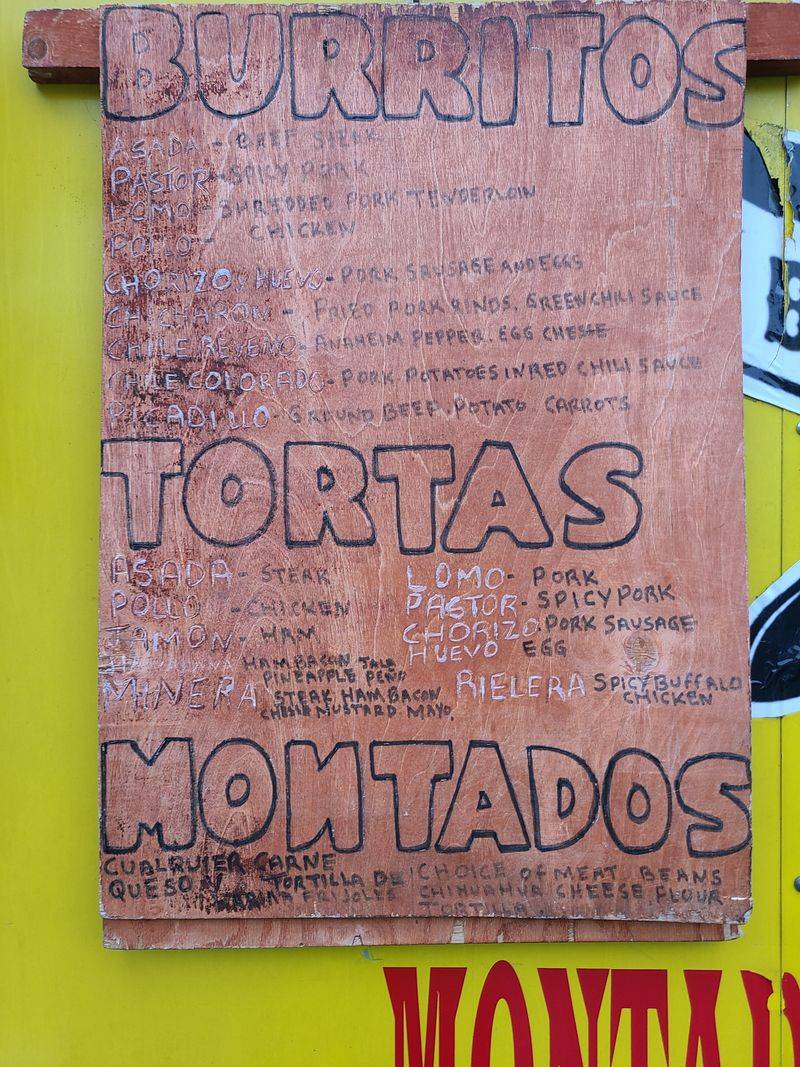 BURRITOS
ASADA - BEEF STEAK
PASTOR - SPICY PORK
LOMO - SHREDDED PORK TENDERLOIN
POLLO - CHICKEN
CHORIZO y HUEVO - PORK SAUSAGE AND EGGS
CHICHARON - FRIED PORK RINDS. GREEN CHILI SAUCE
CHILE REYENO - ANAHEIM PEPPER. EGG CHESSE
CHILE COLORADO - PORK. POTATOES IN RED CHILI SAUCE
PICADILLO - GROUND BEEF. POTATO CARROTS
TORTAS
ASADA - STEAK
POLLO - CHICKEN
JAMON - HAM
HAM BACON JALA
PINEAPPLE PEÑO
MINERA STEAK, HAM BACON
CHESSE MUSTARD MAYO.
LOMO - PORK
PASTOR - SPICY PORK
CHORIZO. PORK SAUSAGE
HUEVO EGG
RIELERA SPICY BUFFALO
CHICKEN
MONTADOS
CUALQUIER CARNE
QUESO TORTILLA DE
HARINA FRIJOLES
CHOICE OF MEAT BEANS
CHIHUAHUA CHEESE FLOUR
TORTILLA
MONTAD